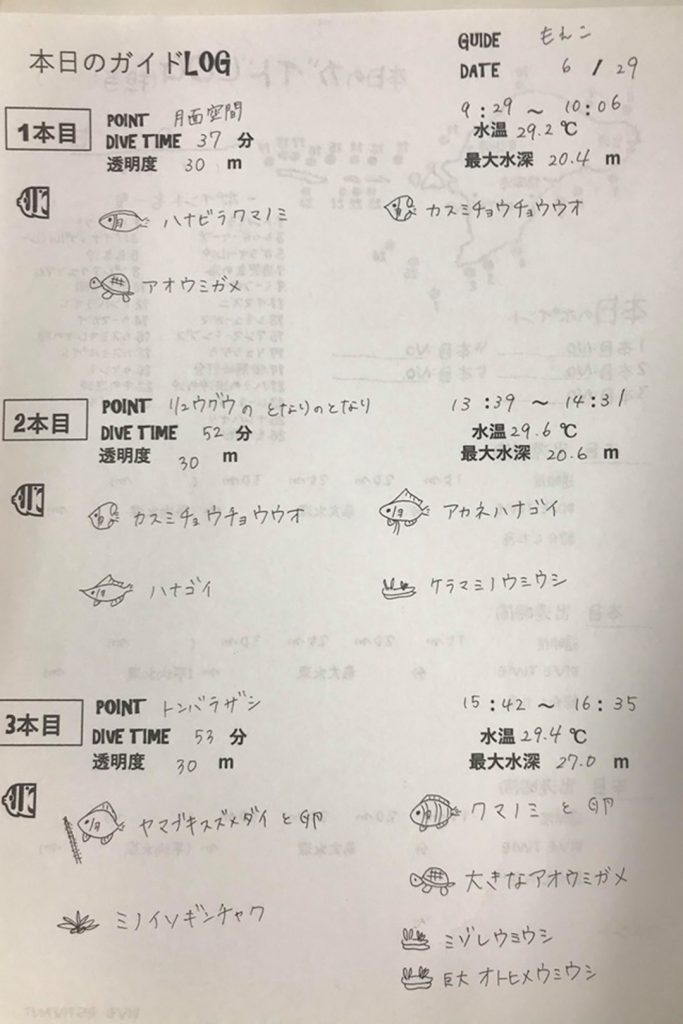 本日のガイドLOG
GUIDE もんこ
DATE 6 / 29
1本目
POINT 月面空間
DIVE TIME 37 分
透明度 30 m
9:29 ～ 10:06
水温 29.2 ℃
最大水深 20.4 m
ハナビラクマノミ
カスミチョウチョウウオ
アオウミガメ
2本目
POINT リュウグウの となりのとなり
DIVE TIME 52 分
透明度 30 m
13:39 ～ 14:31
水温 29.6 ℃
最大水深 20.6 m
カスミチョウチョウウオ
アカネハナゴイ
ハナゴイ
ケラマミノウミウシ
3本目
POINT トンバラザシ
DIVE TIME 53 分
透明度 30 m
15:42 ～ 16:35
水温 29.4 ℃
最大水深 27.0 m
ヤマブキスズメダイ と 卵
クマノミ と 卵
大きなアオウミガメ
ミノイソギンチャク
ミゾレウミウシ
巨大 オトヒメウミウシ